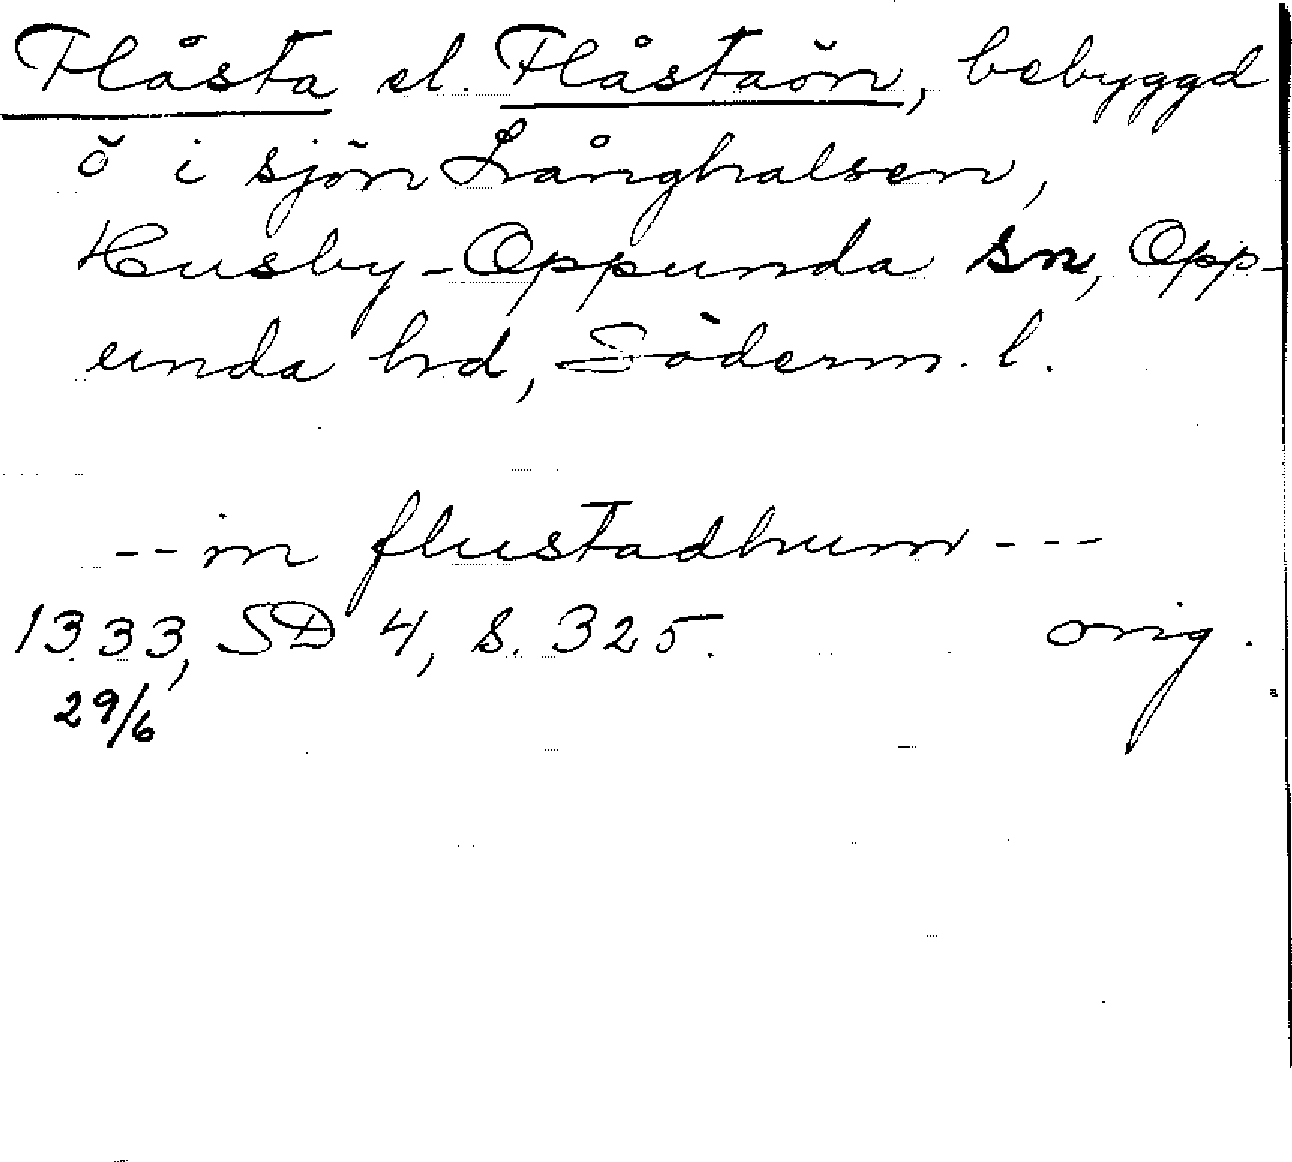 Flåsta el. Flåstaön, bebyggd
ö i sjön Långhalsen,
Husby-Oppunda sn, Opp-
unda hd, Söderm. l.
--in flustadhum---
1333, SD 4, s. 325. orig.
29/6